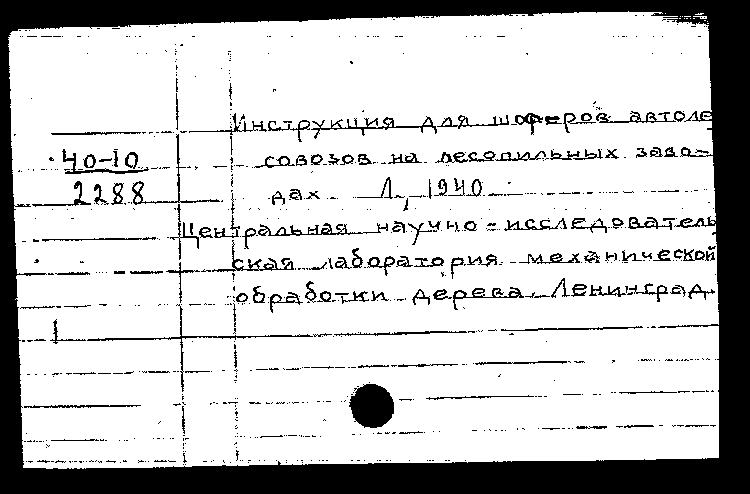 Инструкция для шоферов автоле
40-10
совозов на лесопильных заво-
2288
дах. Л., 1940.
Центральная научно-исследователь
ская лаборатория механической
обработки дерева. Ленинград.
1